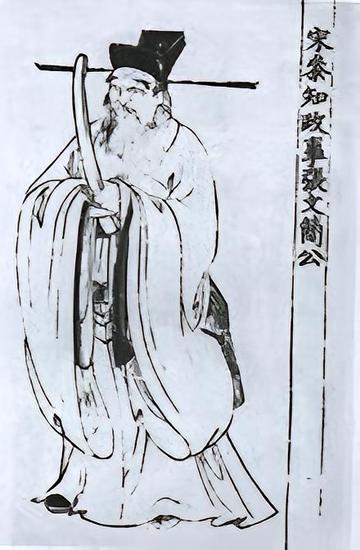 宋叅知政事張文簡公